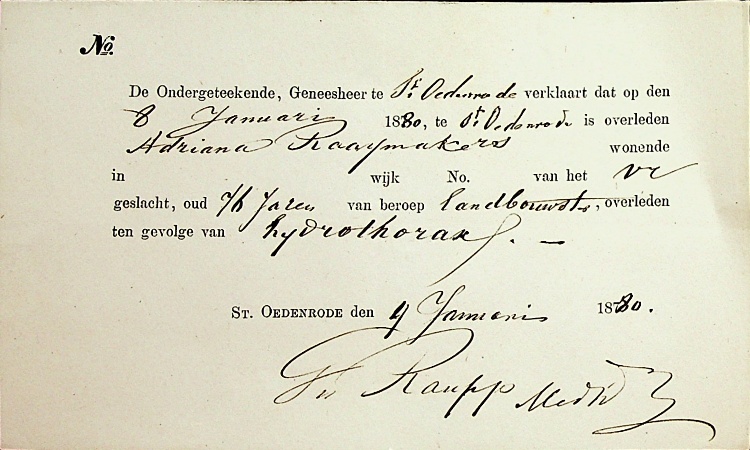 No.
De Ondergeteekende, Geneesheer te St. Oedenrode verklaart dat op den
8 Januari 1880, te St. Oedenrode is overleden
Adriana Raaymakers wonende
in wijk No. van het vr
geslacht, oud 76 Jaren van beroep landbouwster, overleden
ten gevolge van hydrothorax. —
ST. OEDENRODE den 9 Januari 1880.
Raupp Med